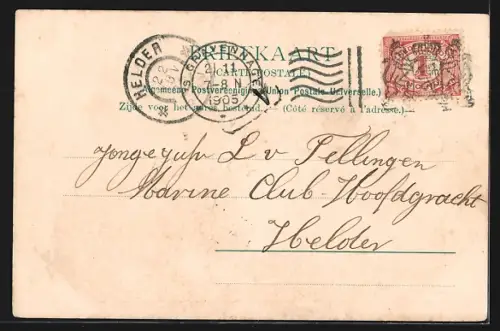 BRIEFKAART
(CARTE POSTALE)
Algemeene Postvereeniging (Union Postale Universelle.)
Zijde voor het adres bestemd. — (Côté réservé à l'adresse.)
HELDER
'S GRAVENHAGE
2 11
7-8 N
1905
Jongejufr L v Tellingen
Marine Club-Hoofdgracht
Helder